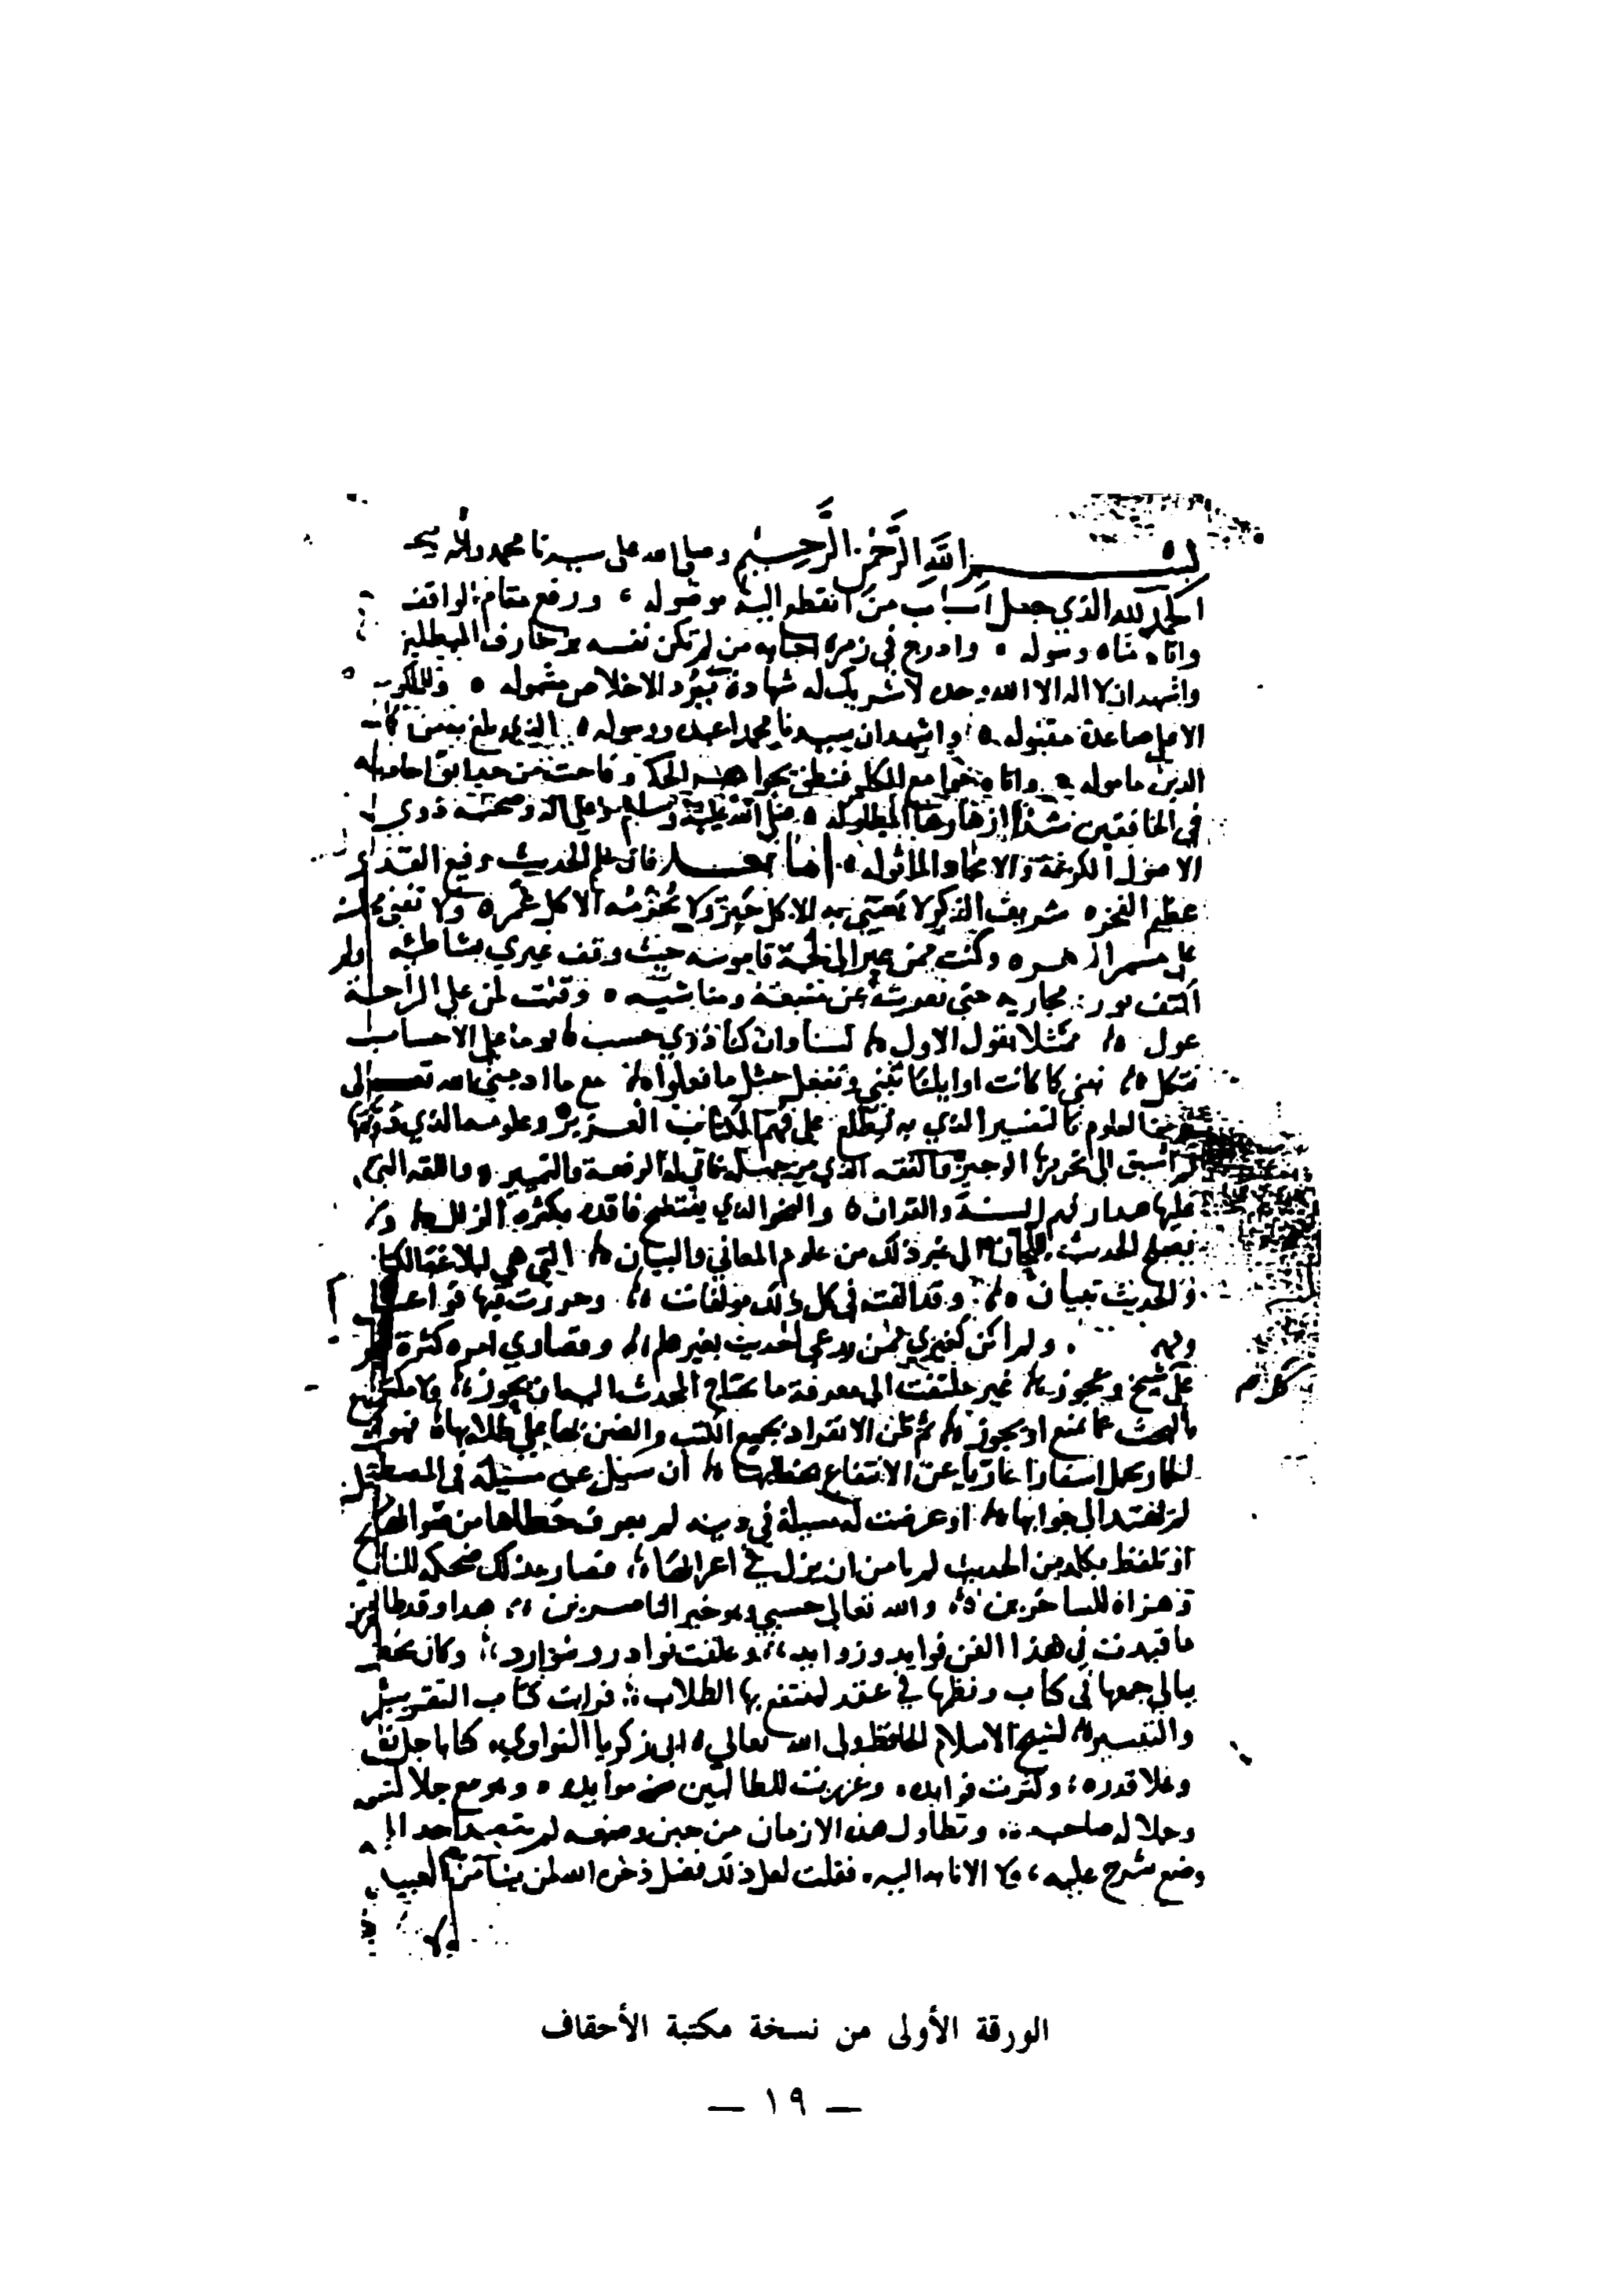 بسم الله الرحمن الرحيم وصلى الله على سيدنا محمد واله
الحمد لله الذي جعل اسباب من انقطع اليه موصوله ورفع مقام الواقف
واتاه مناه وسوله وادرج في زمرة احبابه من لم تكن نفسه بزخارف المبطلين
واشهد ان لا اله الا الله وحده لا شريك له شهادة ببرد الاخلاص مشموله
الامل صاعدة مقبوله واشهد ان سيدنا محمدا عبده ورسوله الذي بلغ
الدين مامولة واتاه جوامع الكلم فنطق بجواهر الحكم وفاحت من حدايق احاديثه
في الخافقين شذا ازهارها المطلوله صلى الله عليه وسلم وعلى اله وصحبه ذوي
الاصول الكريمة والامجاد الماثوله اما بعد فان علم الحديث رفيع القدر
عظيم الفخر شريف الذكر لا يعتني به الا كل حبر ولا يحرمه الا كل غمر ولا تفنى محاسنه
على ممر الدهر وكنت ممن عبر الى لجة قاموسه حيث وقف غيري بشاطئه ولم
اكتف بورود مجاريه حتى بقرت عن منبعه ومناشيه وقلت لمن على الراحة
عول متمثلا بقول الاول لسنا وان كنا ذوي حسب يوما على الاحساب
نتكل نبني كما كانت اوايلنا تبني ونفعل مثل ما فعلوا مع ما امدني الله تعالى
العلوم كالتفسير الذي به يطلع على فهم الكتاب العزيز وعلومه الذي دونتها
لم اسبق الى تحريرها الوجيز والفقه الذي من جهله فاتى له الرفعة والتمييز واللغة التي
عليها مدار فهم السنة والقران والنحو الذي يفتضح فاقده بكثرة الزلل ولا
يصلح الحديث للحان الى غير ذلك من علوم المعاني والبيان التي هي لبلاغة الكتاب
والحديث تبيان وقد الفت في كل ذلك مولفات وحررت فيها قواعد
ولم اكن كغيري ممن يدعي الحديث بغير علم وقصارى امره كثرة
على شيخ وعجوز غير ملتفت الى معرفة ما يحتاج المحدث اليه ان يجوز ولا مكترث
بالبحث عما يمتنع او يجوز ثم ظن الانفراد بجميع الكتب والضن بها على طلابها فهو
كالحمار يحمل اسفارا عاريا عن الانتفاع بخطابها ان سيل عن مسيلة في المصطلح
لم يهتد الى جوابها او عرضت له مسيلة في دينه لم يعرف خطاها من صوابها
او تلفظ بكلمة من الحديث لم يامن ان يزل في اعرابها فصار بذلك ضحكة للناظرين
وهزاة للساخرين والله تعالى حسبي وهو خير الناصرين هذا وقد طال
ما قيدت في هذا الفن فوايد وزوايد وعلقت نوادر وشوارد وكان يخطر
ببالي جمعها في كتاب ونظمها في عقد لينتفع بها الطلاب فرايت كتاب التقريب
والتيسير لشيخ الاسلام الحافظ ولي الله تعالى ابي زكريا النواوي كتابا جل نفعه
وعلا قدره وكثرت فوايده وغزرت للطالبين موايده وهو مع جلالته
وجلالة صاحبه وتطاول هذه الازمان من حين وضعه لم يتصد احد الى
وضع شرح عليه ولا الانابة اليه فقلت لعل ذلك فضل ذخره الله لمن يشا من العبيد
ولا
الورقة الأولى من نسخة مكتبة الأحقاف
— ١٩ —